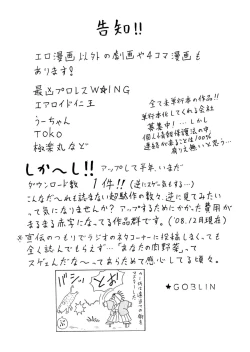 告知!!
エロ漫画以外の劇画や4コマ漫画も
あります?
最凶プロレスW★ING
エアロイド仁王
うーちゃん
TOKO
極楽丸など
全て未単行本の作品!!
単行本化してくれる会社
募集中! …しかし
個人情報保護法の中、
連絡が来ることは100%
有りえ無いと思う…
しか〜し!! アップして半年、いまだ
ダウンロード数 1件!! (逆にスゲー気もする…)
こんなだ〜れも読まない超駄作の数々、逆に見てみたい
って気になりませんか? アップするためにかかった費用が
まるまる赤字になってる作品群です。('08.12月現在)
※宣伝のつもりでラジオのネタコーナーに投稿しまくっても
全く読んでもらえず…「まなたの肉野菜」って
スゲェんだな〜ってあらためて感心してる頃々。
バシッ
とお!
★GOBLIN